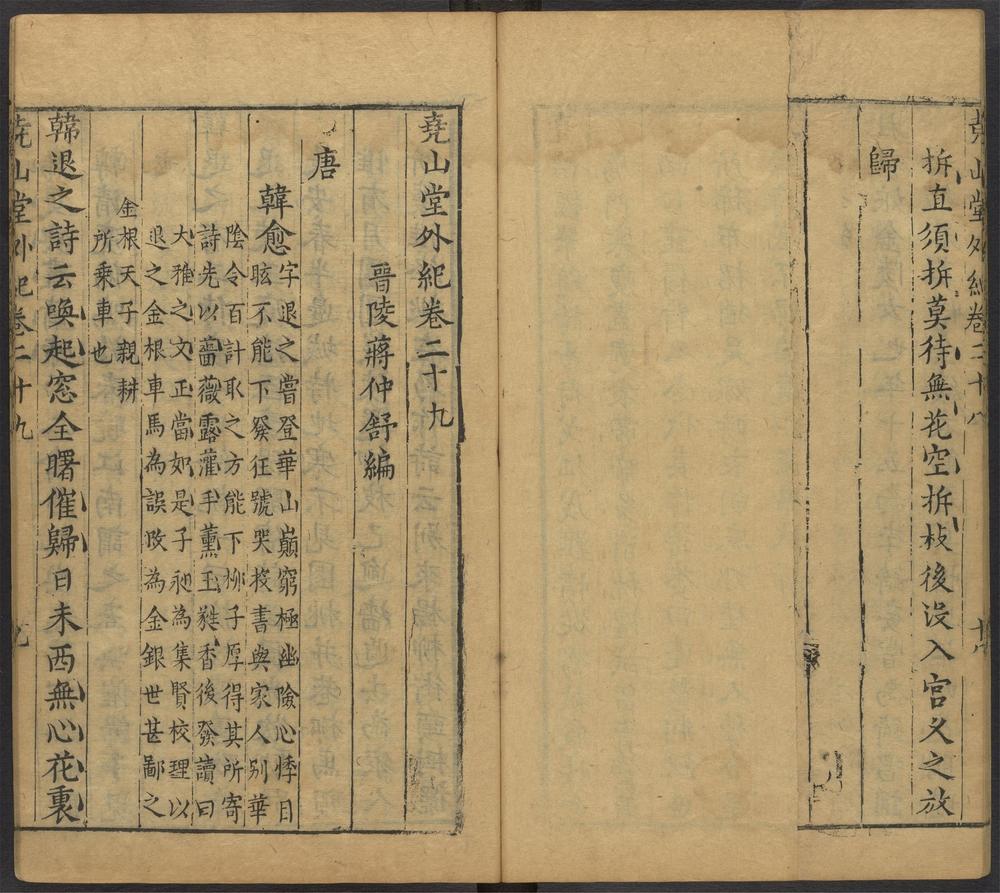 堯山堂外紀卷二十八
折直須折莫待無花空折枝後没入宫久之放
歸
堯山堂外紀卷二十九
晉陵蔣仲舒編
唐
韓愈
字退之嘗登華山巔窮極幽險心悸目
眩不能下發狂號哭投書與家人别華
陰令百計取之方能下柳子厚得其所寄
詩先以薔薇露灌手薰玉蕤香後發讀曰
大雅之文正當如是子昶為集賢校理以
退之金根車馬為誤改為金銀世甚鄙之
金根天子親耕
所乗車也
韓退之詩云唤起窓全曙催歸日未西無心花裏
堯山堂外紀卷二十九